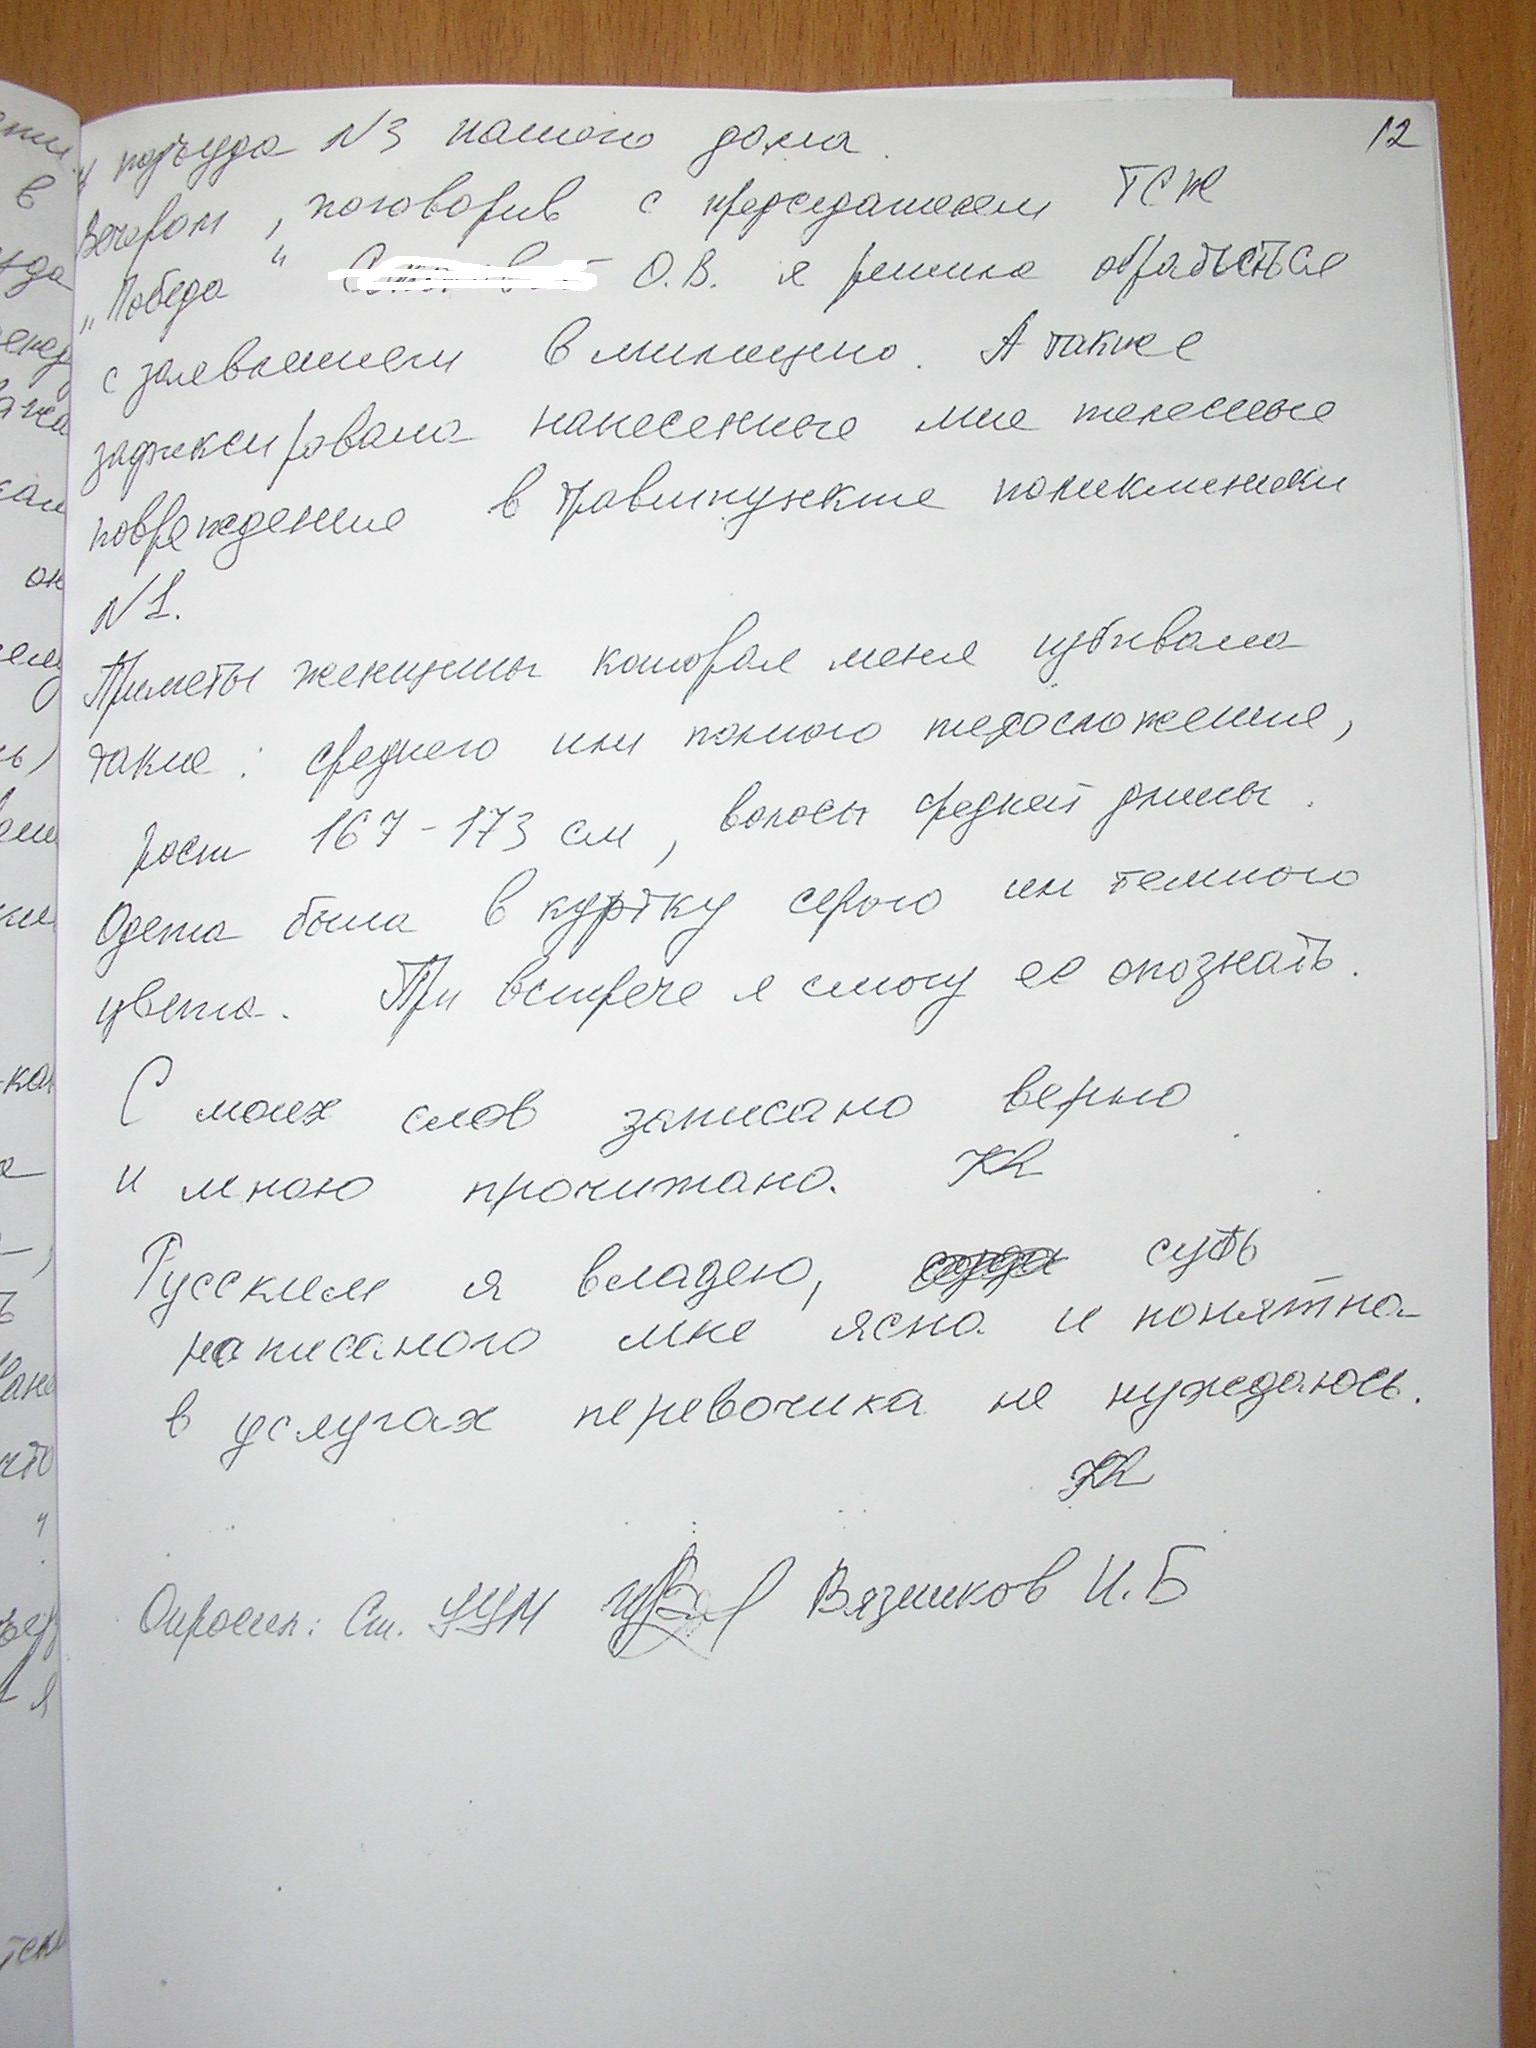 12
у подъезда N3 нашего дома.
Вечером, поговорив с председателем ТСЖ
„Победа" О.В. я решила обратьсться
с заявлением в милицию. А также
зафиксировала нанесенные мне телесные
повреждения в травмпункте поликлиники
N1.
Приметы женщины которая меня избивала
такие: среднего или полного телосложения,
рост 167-173 см, волосы средней длины.
Одета была в куртку серого ил темного
цвета. При встрече я смогу ее опознать.
С моих слов записано верно
и мною прочитано.
Русским я владею, суть
написаного мне ясна и понятна
в услугах перевочика не нуждаюсь.
Опросил: Ст. УУМ Вязников И.Б